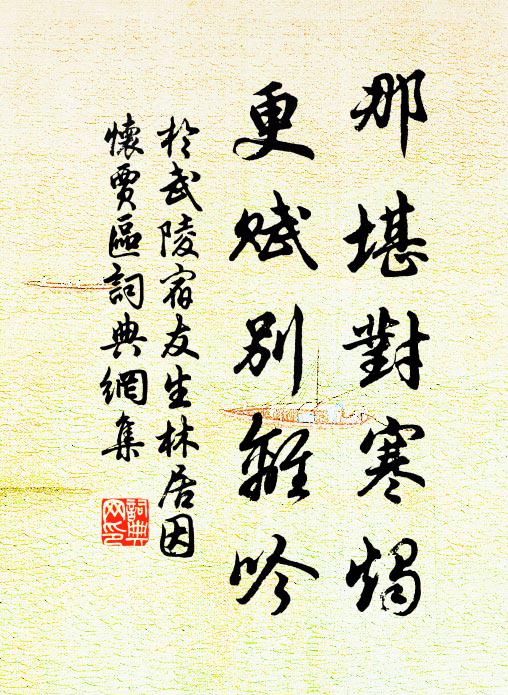 那堪對寒燭
更賦別離吟
於武陵宿友生林居因
懷賈區詞典網集
詞典
网印